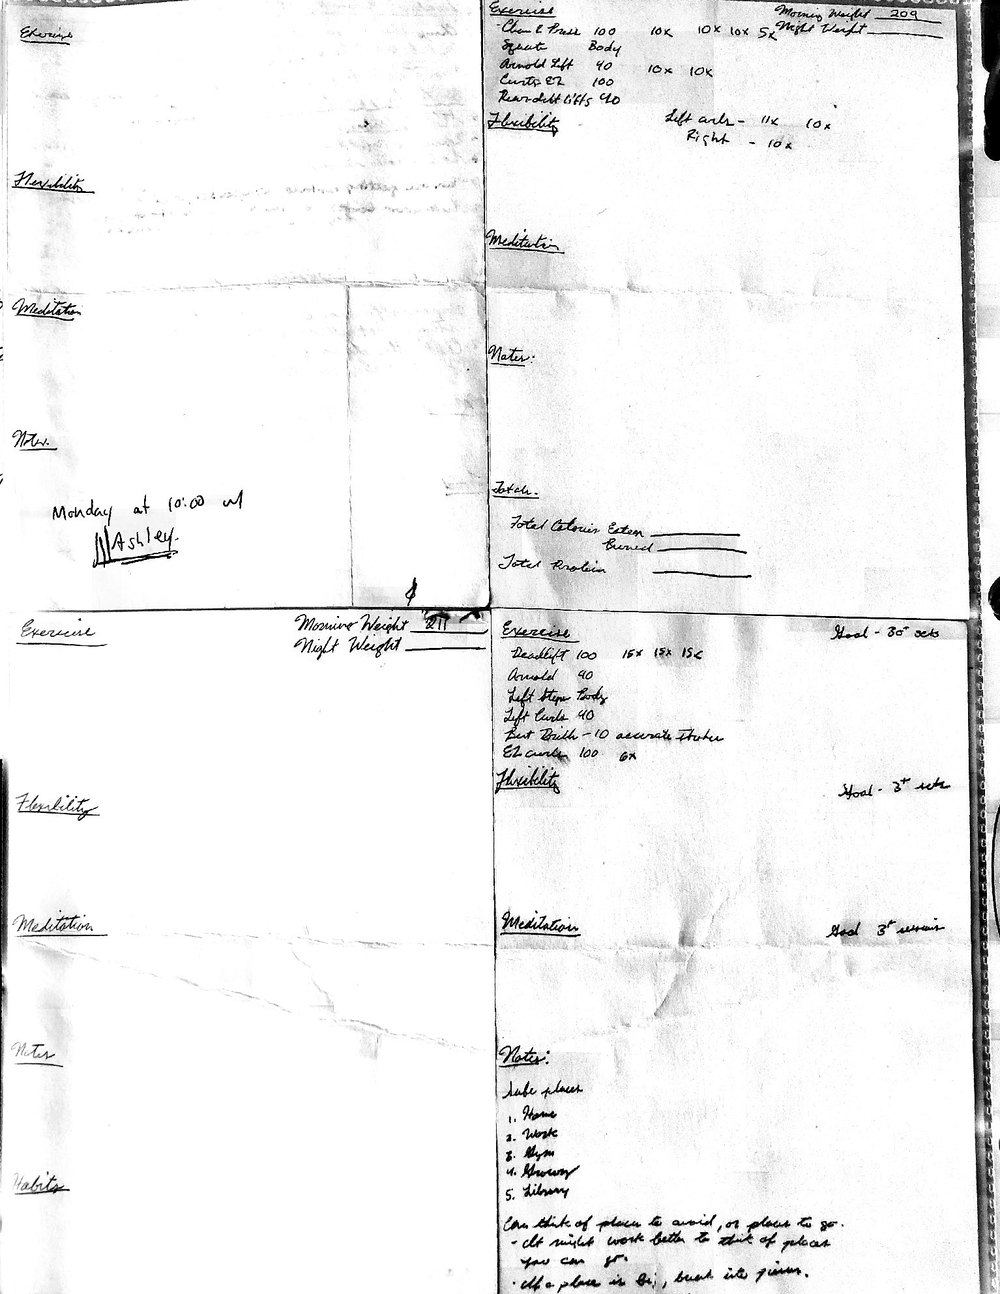 Exercise
Flexibility
Meditation
Notes.
Monday at 10:00 w/
Ashley.
Exercise
Morning Weight 209
Night Weight
Clean & Press 100 10x 10x 10x 5x
Squats Body
Arnold Lift 40 10x 10x
Curls EZ 100
Rear delt lifts 40
Flexibility
Left curls - 11x 10x
Right - 10x
Meditation
Notes:
Totals.
Total Calories Eaten
Burned
Total Protein
Exercise
Morning Weight 211
Night Weight
Flexibility
Meditation
Notes
Habits
Exercise
Goal - 30+ sets
Deadlift 100 15x 15x 15x
Arnold 40
Left Steps Body
Left Curls 40
10 accurate
EZ curls 100 6x
Flexibility
Goal - 3+ sets
Meditation
Goal 3+
Notes:
Safe places
1. Home
2. Work
3. Gym
4. Grocery
5. Library
Can think of places to avoid, or places to go.
- It might work better to think of places
you can go.
- If a place is big, break into pieces.